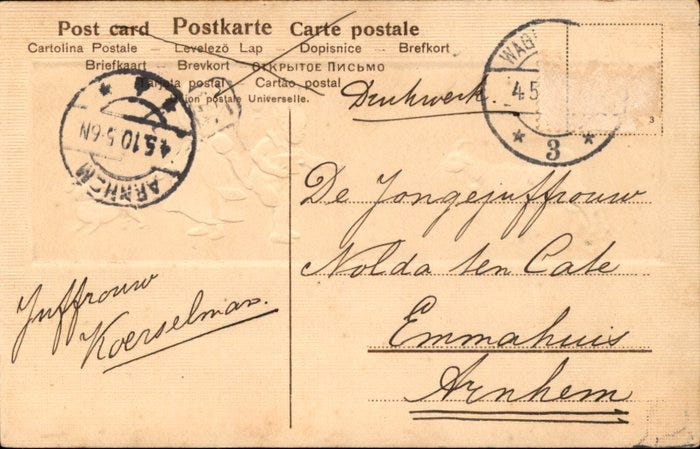 Post card Postkarte Carte postale
Cartolina Postale – Levelező Lap – Dopisnice – Brefkort
Briefkaart – Brevkort – Открытое Письмо
postal – Cartão postal
Union postale Universelle.
Drukwerk.
WAG
4.5
3
3
4.5.10.5-6N
ARNHEM
De Jongejuffrouw
Nolda ten Cate
Emmahuis
Arnhem
Juffrouw
Koerselman.